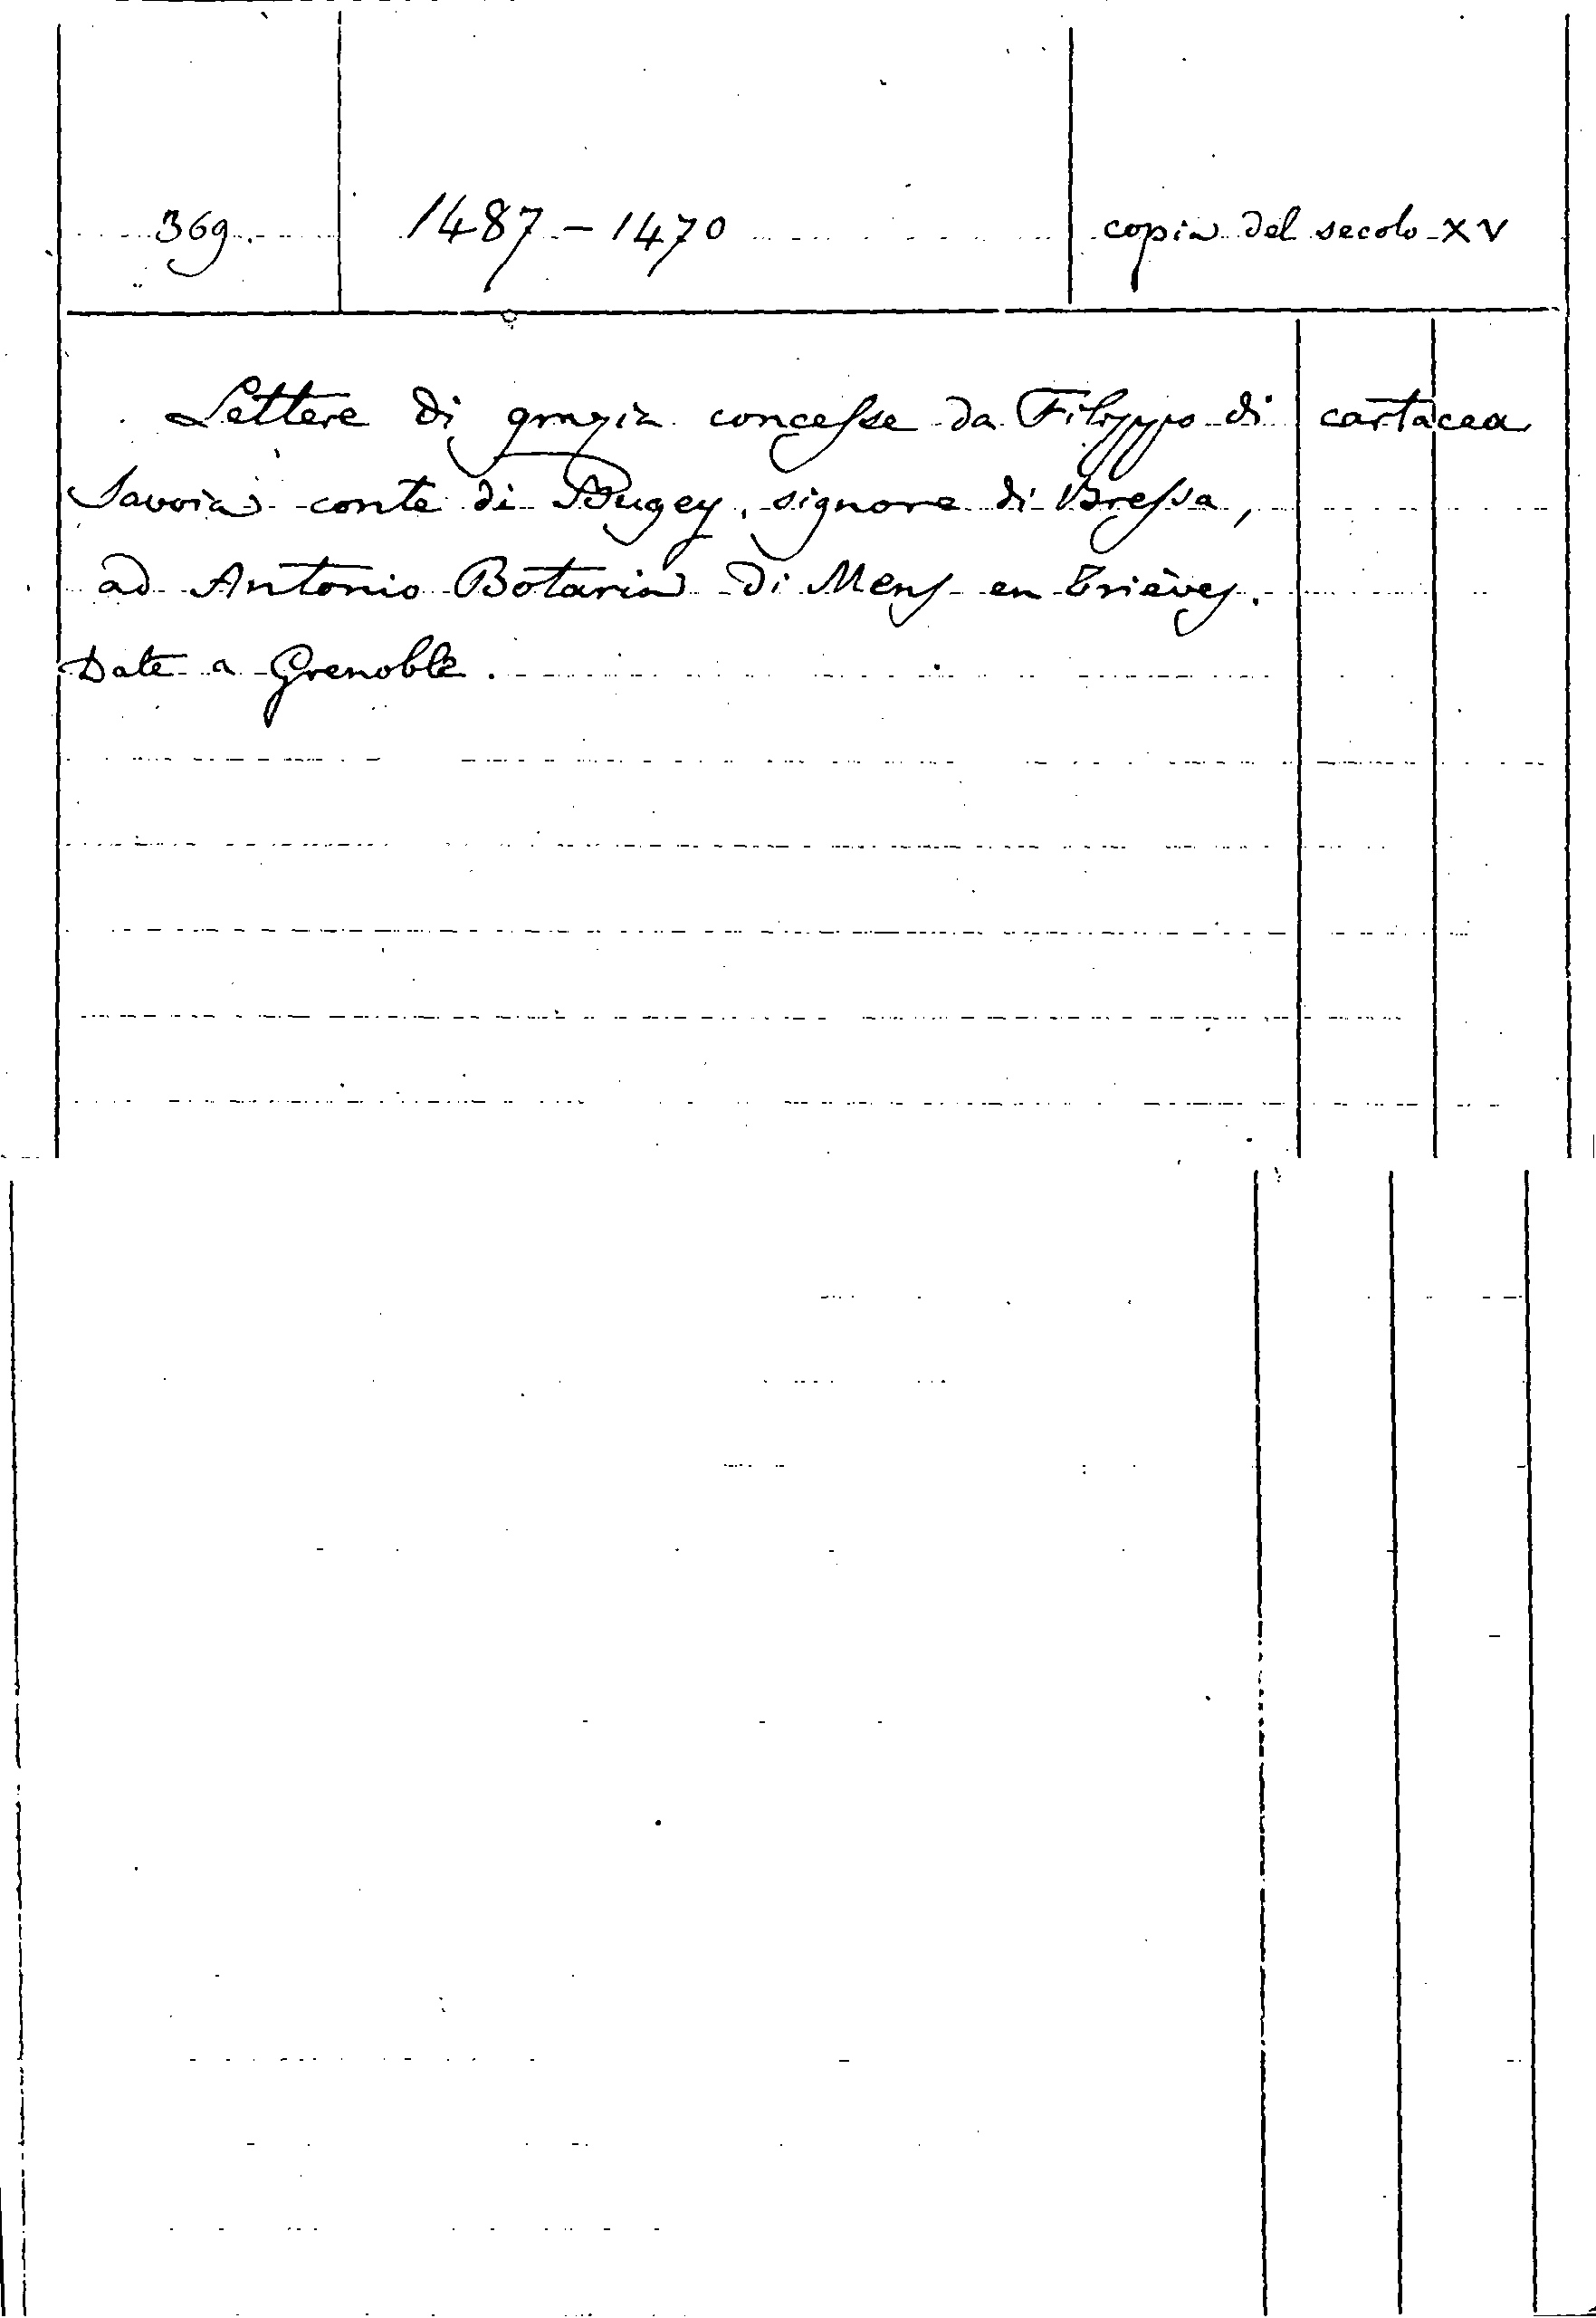 369. 1487-1470 copia del secolo XV
Lettere di grazia concesse da Filippo di cartacea
Savoia conte di Bugey, signore di Bressa,
ad Antonio Botaria di Mens en Trièves.
Date a Grenoble.